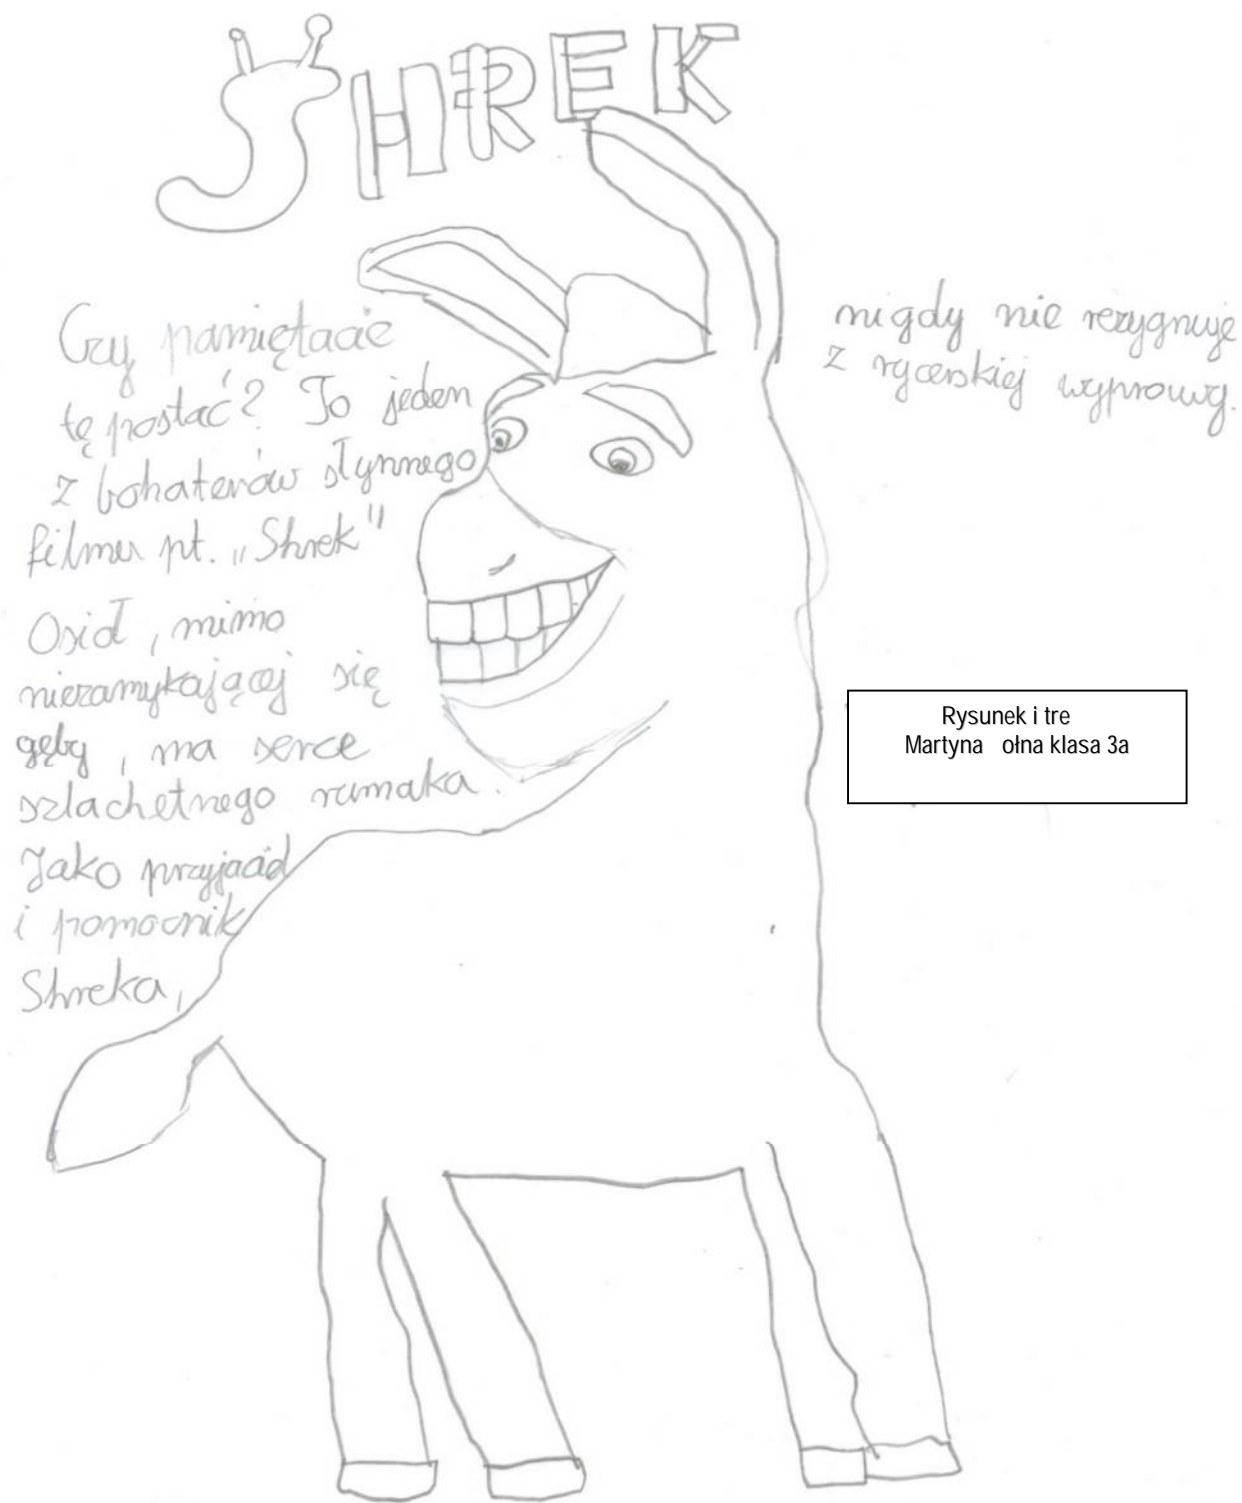 SHREK
Czy pamiętacie
tę postać? To jeden
z bohaterów słynnego
filmu pt. „Shrek"
Osioł, mimo
niezamykającej się
gęby, ma serce
szlachetnego rumaka.
Jako przyjaciel
i pomocnik
Shreka,
nigdy nie rezygnuje
z rycerskiej wyprawy.
Rysunek i tre
Martyna ołna klasa 3a